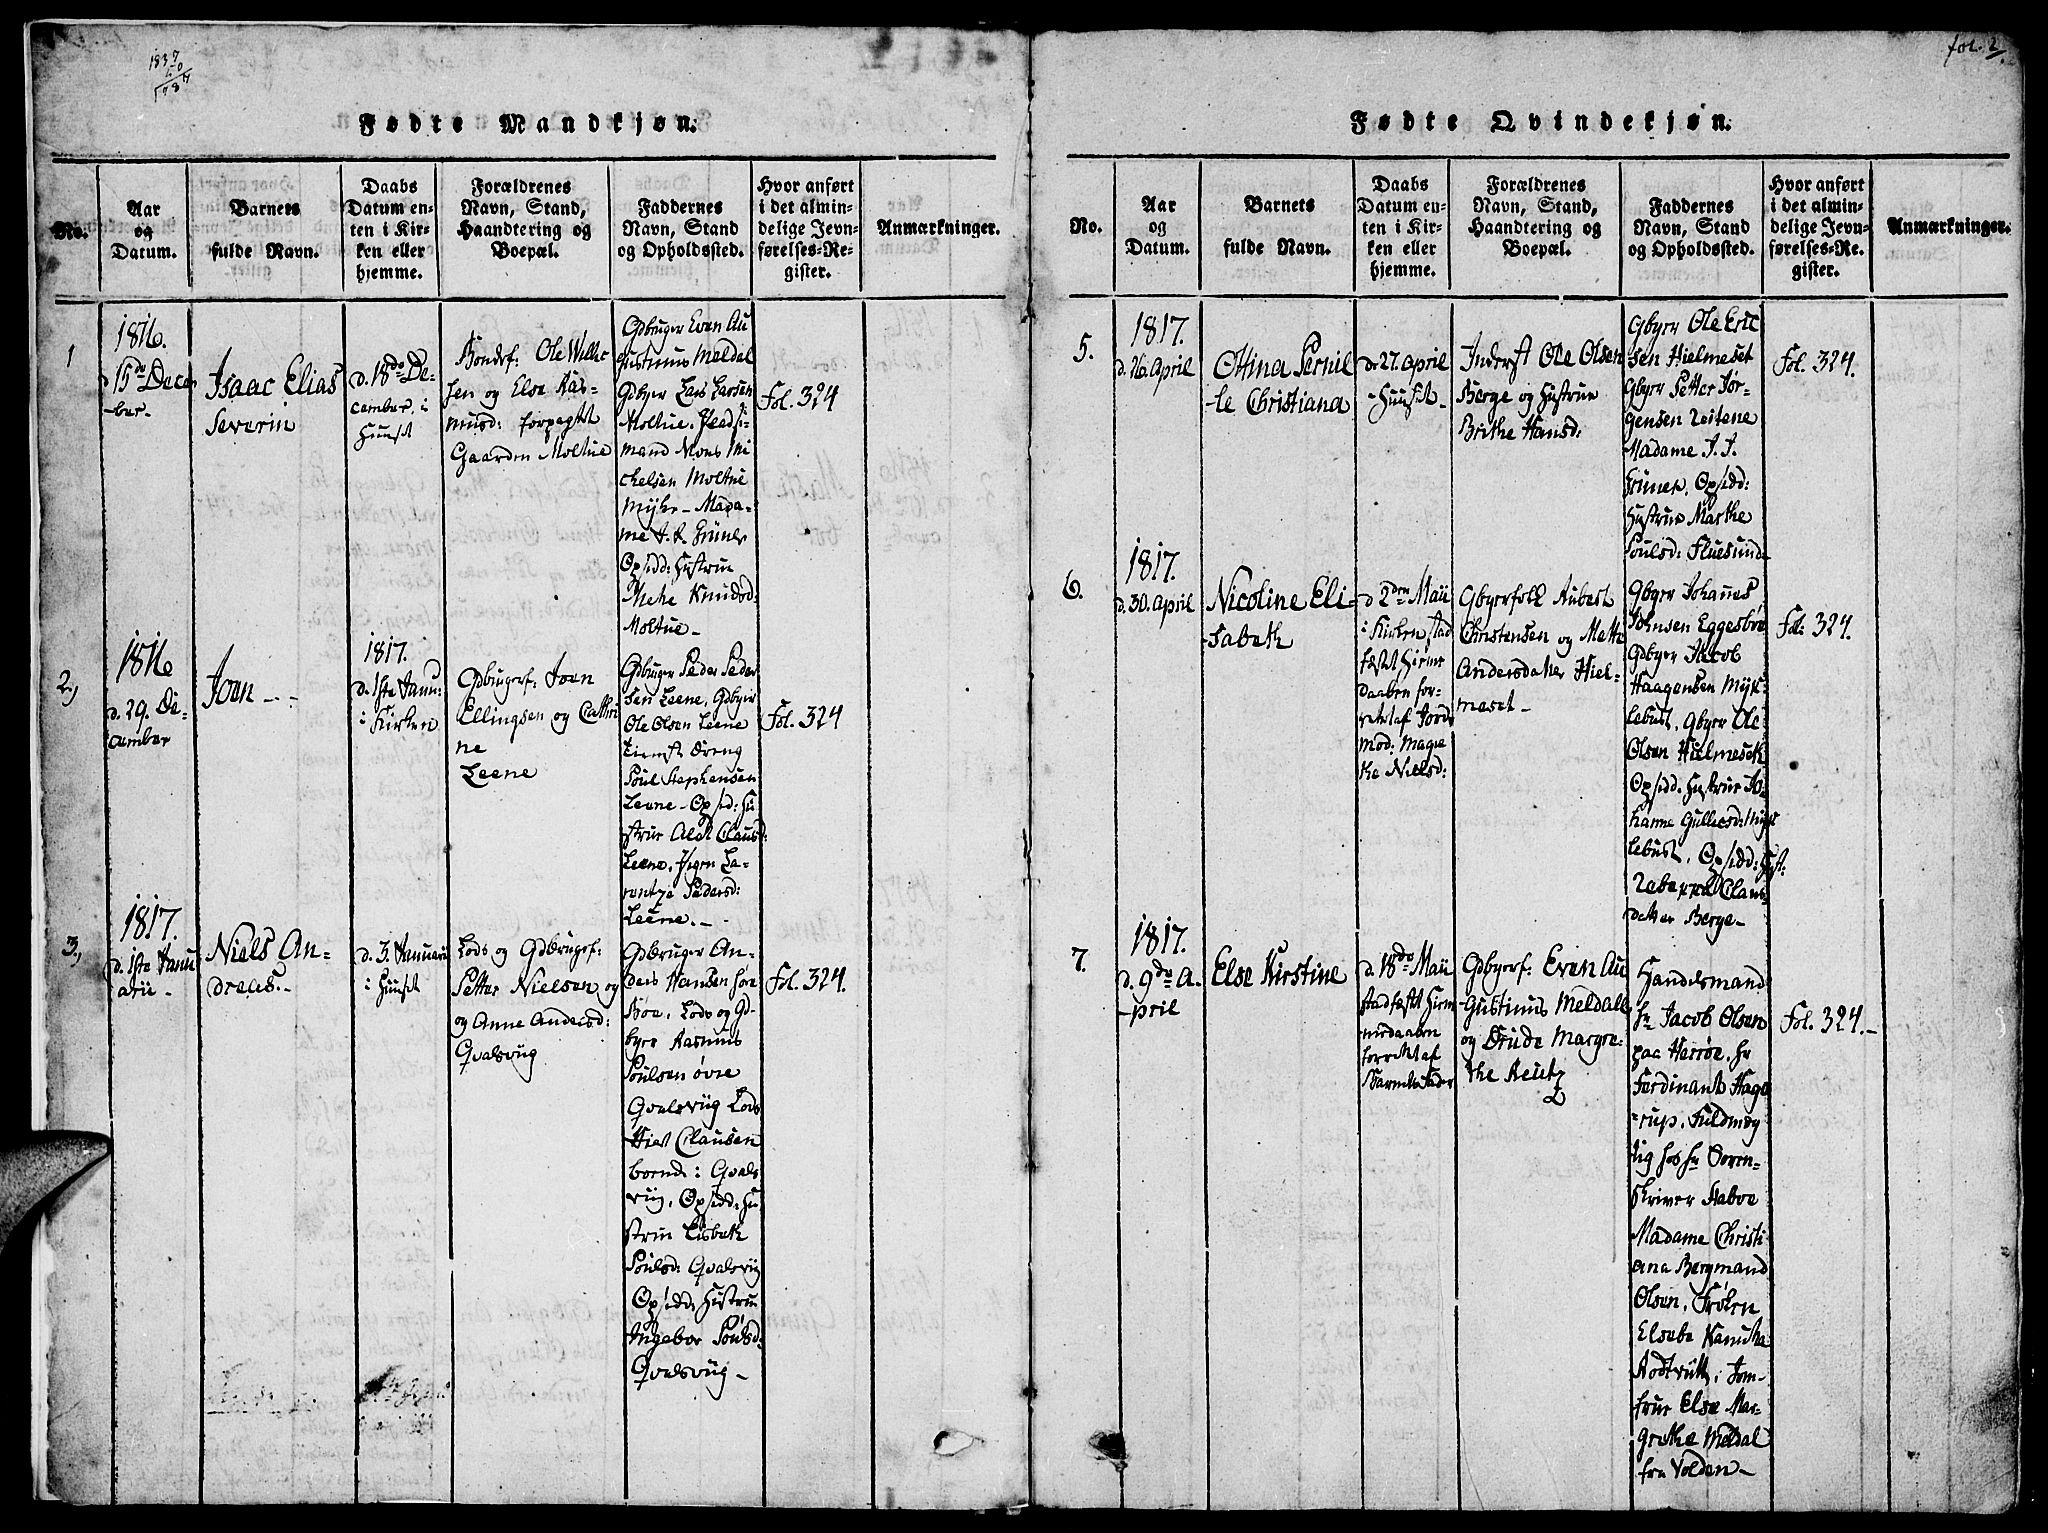 fol. 2
1837
Fødte Mandkjøn.
No.
Aar
og
Datum.
Barnets
fulde Navn.
Daabs
Datum en-
ten i Kir-
ken eller
hjemme.
Forældrenes
Navn, Stand,
Haandtering og
Boepæl.
Faddernes
Navn, Stand
og Opholdssted.
Hvor anført
i det almin-
delige Jevn-
førelses-Re-
gister.
Anmærkninger.
1
1816.
d 15de Decem
-ber-
Isaac Elias
Severin
d. 18de De-
cember, i
Huuset
Bondef: Ole Willer
sen og Else Ras-
musd: forpagtet
Gaarden Moltue
Gdbruger Even Au
gustinus Meldal
Gdbyer Lars Larsen
Moltue. Pladsi-
mand Mons Mi
chelsen Moltue
Myhr - Mada-
me
Opsidd: Hustrue
Mette Knudsd:
Moltue -
Fol. 324
2,
1816
d. 29. De-
cember
Joen - -
1817.
d. 1ste Janu:
i Kirken
Gdbrugerf: Joen
Ellingsen og Cathri
ne
Leene
Gdbruger Peder Peder
sen Leene, Gdbyer
Ole Olsen Leene
Tienest Dreng
Poul Stephensen
Leene - Opsid: Hu
strue Alet Claused:
Leene, Pigen La-
rentze Pedersd:
Leene. -
Fol. 324
3,
1817.
d. 1ste Janu
arii -
Niels An-
dreas. -
d. 3. Januarii
i Huuset
Lods og Gdbrugerf:
Petter Nielsen og
og Anne Andersd:
Qvalsviig
Gdbruger An-
ders Hansen
Bøe, Lods og Gd-
byer Rasmus
Poulsen øvre
Qvalsviig Lods
Clausen
boende i Qvals
viig, Opsidd: Hu
strue Lisbeth
Poulsd: Qvalsviig
Opsidd, Hustrue
Ingebor Poulsd:
Qvalsviig -
Fol. 324.
Fødte Qvindekjøn.
No.
Aar
og
Datum.
Barnets
fulde Navn.
Daabs
Datum en-
ten i Kir-
ken eller
hjemme.
Forældrenes
Navn, Stand,
Haandtering og
Boepæl.
Faddernes
Navn, Stand
og Opholdssted.
Hvor anført
i det almin-
delige Jevn-
førelses-Re-
gister.
Anmærkninger.
5.
1817.
d. 26. April
Ottina Pernil
-le Christiana
d. 27. April
- Huuset -
Inderst Ole Olsen
Berge og Hustrue
Brithe Hansd:
Gbyer Ole Eric
sen Hielmeset
Gbyer Petter Jør-
gensen Reitene
Madame J. J.
Opsidd:
Hustrue Marthe
Poulsd: Fluesund
Fol. 324.
6.
1817.
d. 30. April
Nicoline Eli-
-sabeth
d 2den Maii
i Kirken stad
fæstet Hiem
daaben for-
rettet af Jord
mod: Magre
the Nielsd:
Gbyerfolk Aubert
Christensen og Mette
Andersdatter Hiel-
meset -
Gbyer Johannes
Johnsen Eggesbø
Gdbyer Jacob
Haagensen Mykl
lebust, Gbyer Ole
Olsen Hielmeseth
Opsidd. Hustrue Jo-
hanne Gullesd: Mykl
lebust, Opsidd: Hust:
Rebecca Claus
datter Berge -
Fol: 324.
7.
1817.
d. 9de A.
-pril
Else Kirstine
d. 18de Maii
stadfæstet Hiem
medaaben
forrettet af
Barnets Fader
Gdbyerf: Even Au
-gustinus Meldall
og Drude Margre-
the Reutz
Handelsmand
Hr Jacob Olsen
paa Herrøe, Hr
Ferdinant Hage
=rup, Fuldmeg
tig hos Hr Soren-
skriver Aaboe
Madame Christi
ana Bergmand
Olsen, Frøken
Elsebe Kanutha
Jom-
frue Else Mar-
grethe Meldal
fra Volden -
Fol. 324. -